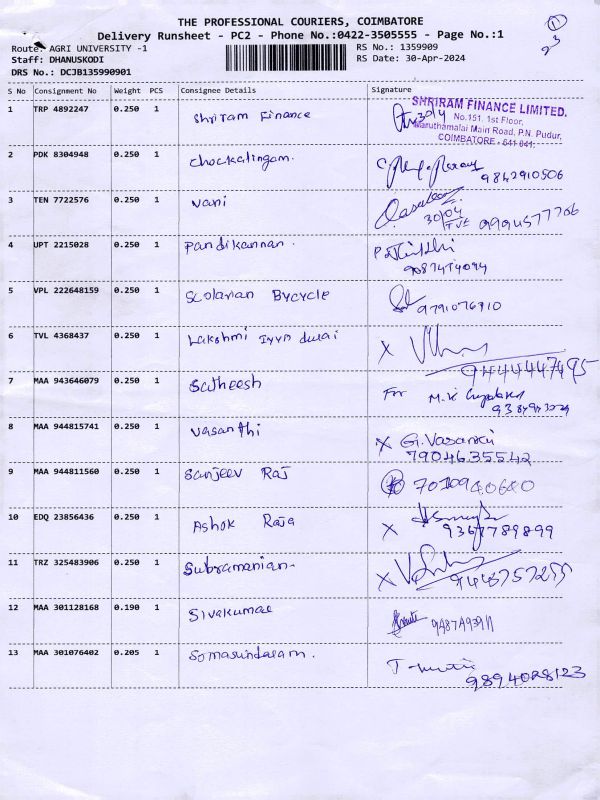 THE PROFESSIONAL COURIERS, COIMBATORE
Delivery Runsheet - PC2 - Phone No.:0422-3505555 - Page No.:1
Route: AGRI UNIVERSITY -1
RS No.: 1359909
Staff: DHANUSKODI
RS Date: 30-Apr-2024
DRS No.: DCJB135990901
S No Consignment No Weight PCS Consignee Details Signature
1 TRP 4892247 0.250 1 Shriram Finance 30/4
SHRIRAM FINANCE LIMITED.
No.151, 1st Floor,
Maruthamalai Main Road, P.N. Pudur,
COIMBATORE - 641 041.
2 PDK 8304948 0.250 1 chockalingam. 9842910506
3 TEN 7722576 0.250 1 vani
30/04 9994577706
4 UPT 2215028 0.250 1 Pandikannan.
9087474094
5 VPL 222648159 0.250 1 Scolarian Bycycle 9791076910
6 TVL 4368437 0.250 1 Lakshmi Iyyn durai X
9444447495
7 MAA 943646079 0.250 1 Satheesh For M.K
8 MAA 944815741 0.250 1 vasanthi X G. Vasanthi
7904635542
9 MAA 944811560 0.250 1 Sanjeev Raj
10 EDQ 23856436 0.250 1 Ashok Raja X
9367789899
11 TRZ 325483906 0.250 1 Subramanian. X
9443757255
12 MAA 301128168 0.190 1 Sivakumar
13 MAA 301076402 0.205 1 Somasundaram.
9894028123